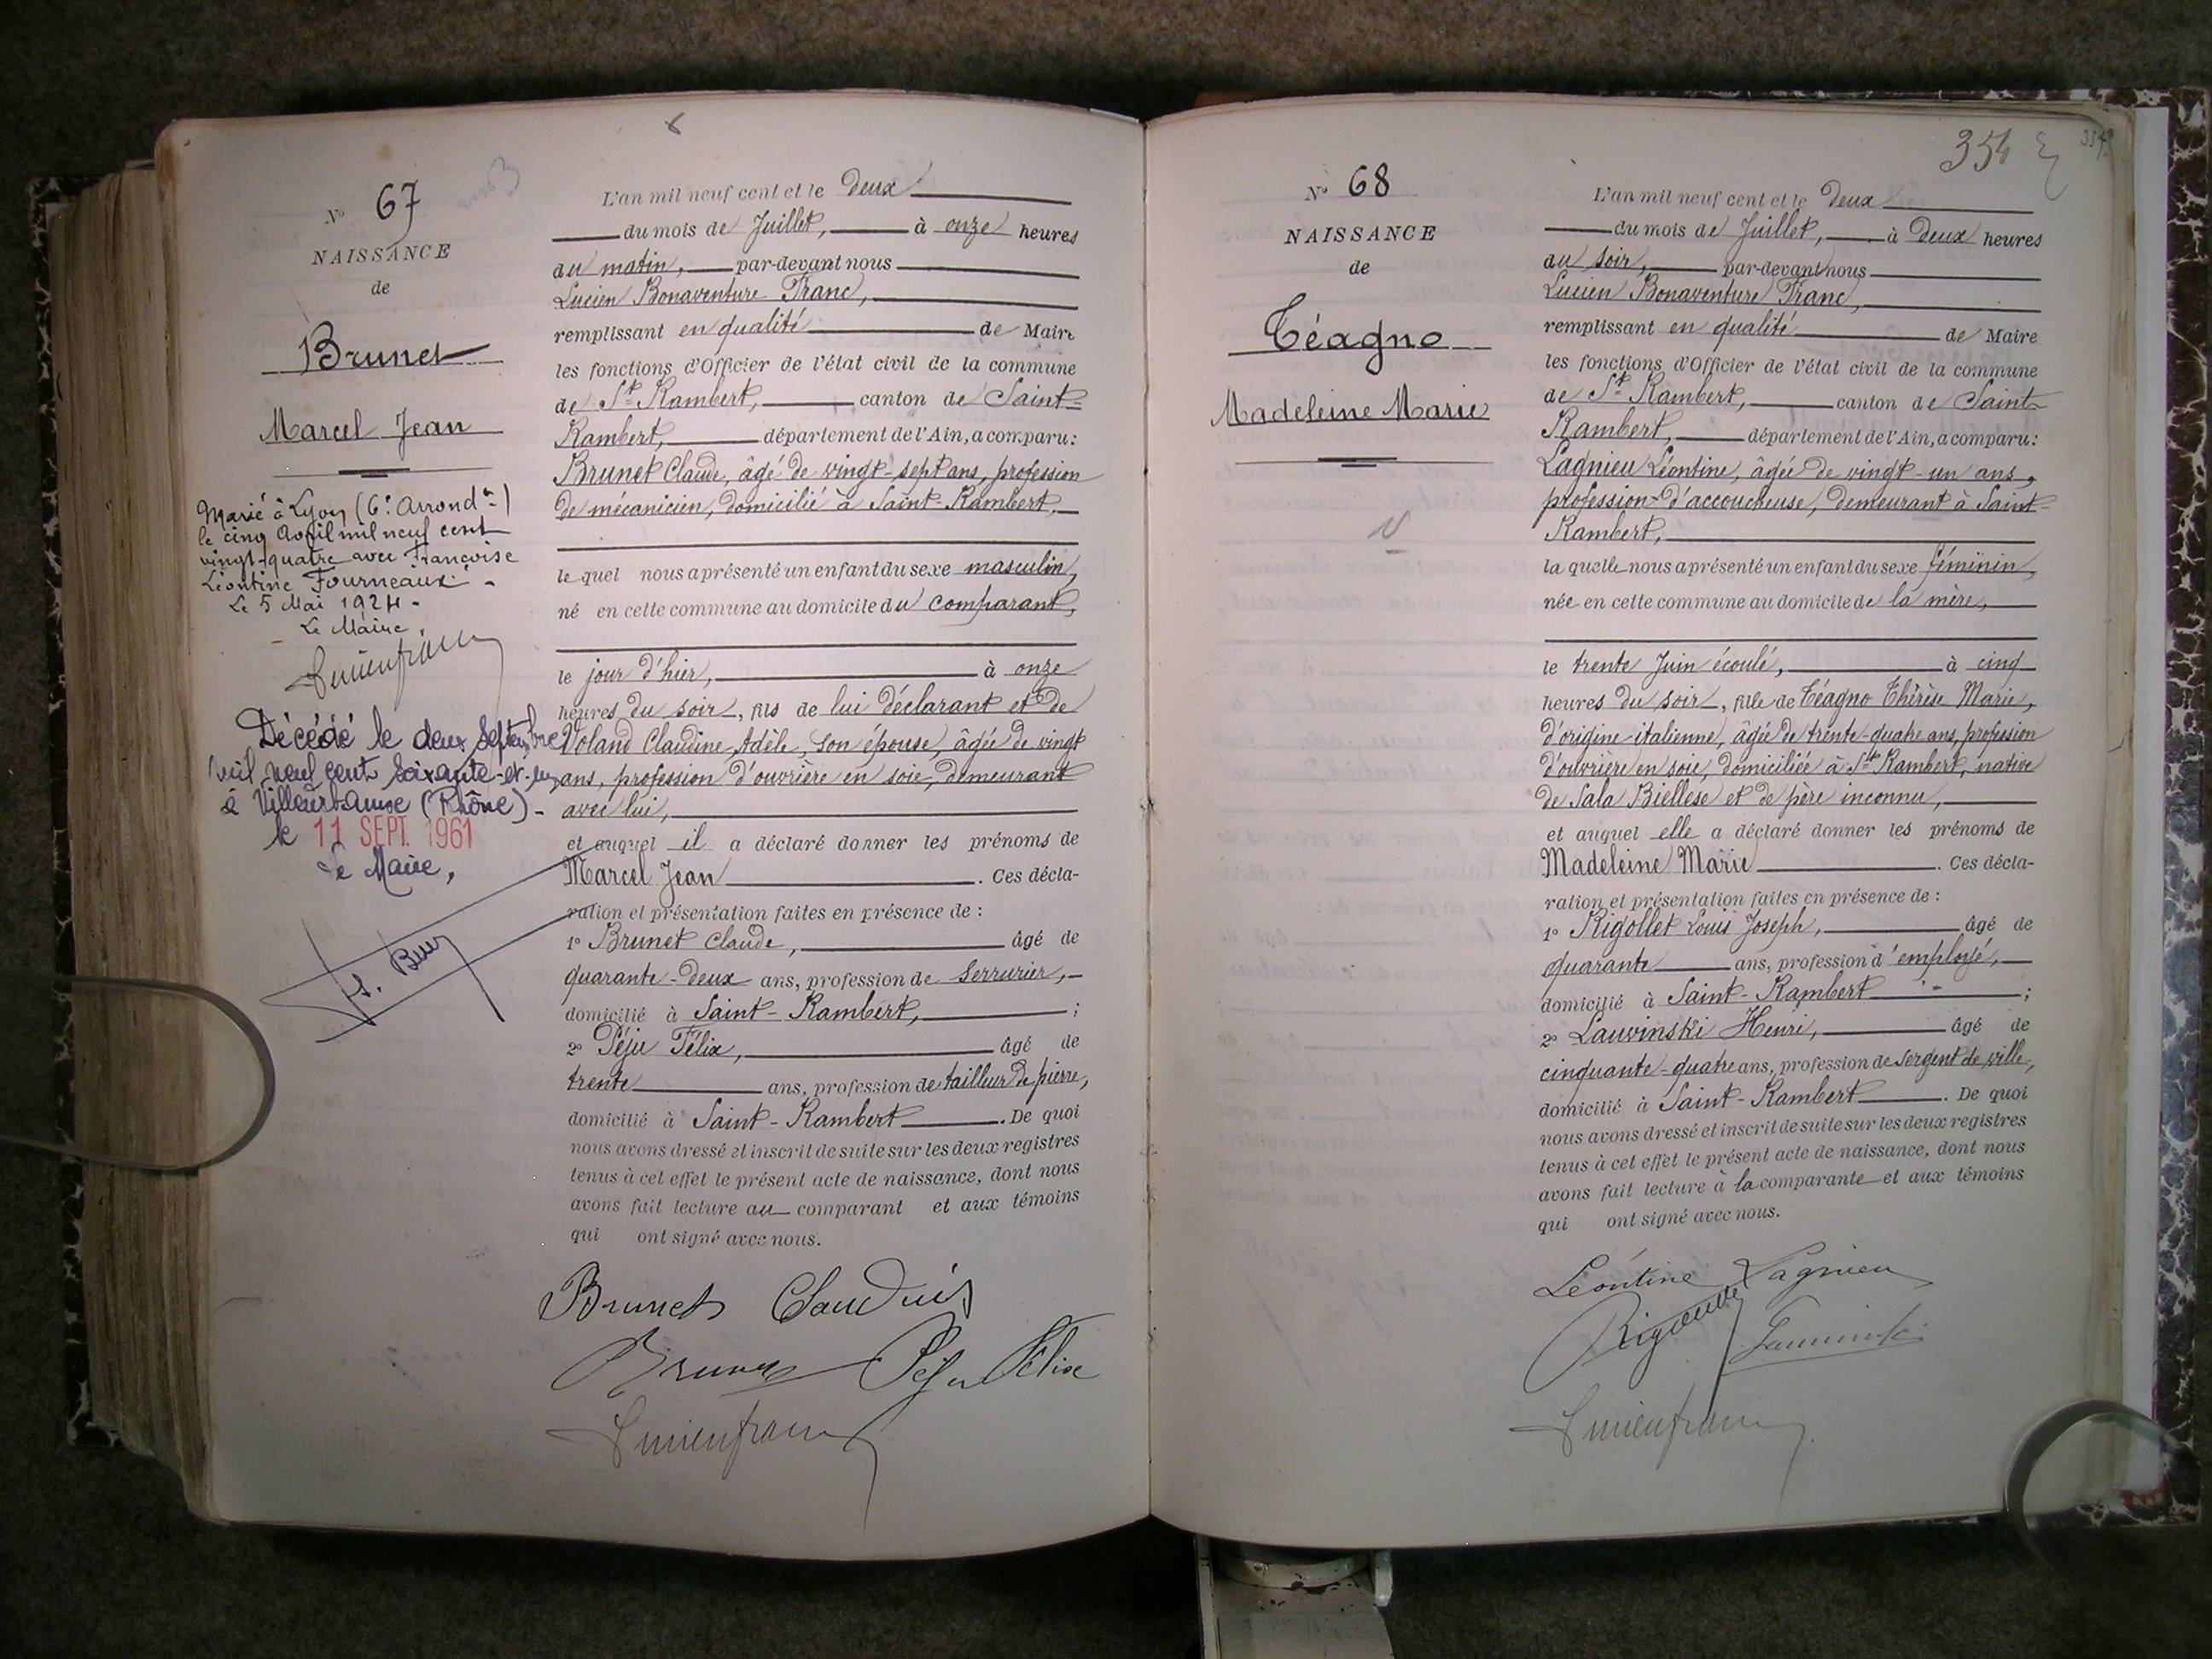 N° 67
NAISSANCE
de
Brunet
Marcel Jean
Marié à Lyon (6e Arrondt)
le cinq Avril mil neuf cent
vingt-quatre avec Françoise
Léontine Fourneaux -
Le 5 Mai 1924 -
Le Maire,
Lucien franc
Décédé le deux Septembre
mil neuf cent soixante-et-un
à Villeurbanne (Rhône) -
le 11 SEPT. 1961
Le Maire,
L'an mil neuf cent et le Deux
du mois de Juillet, à onze heures
du matin, par-devant nous
Lucien Bonaventure Franc,
remplissant en qualité de Maire
les fonctions d'Officier de l'état civil de la commune
de St Rambert, canton de Saint-
Rambert, département de l'Ain, a comparu :
Brunet Claude, âgé de vingt-sept ans, profession
de mécanicien, domicilié à Saint-Rambert,
le quel nous a présenté un enfant du sexe masculin,
né en cette commune au domicile du comparant,
le jour d'hier, à onze
heures du soir, fils de lui déclarant et de
Voland Claudine Adèle, son épouse, âgée de vingt
ans, profession d'ouvrière en soie, demeurant
avec lui,
et auquel il a déclaré donner les prénoms de
Marcel Jean. Ces décla-
ration et présentation faites en présence de :
1° Brunet Claude, âgé de
quarante-deux ans, profession de serrurier,
domicilié à Saint-Rambert, ;
2° Péju Félix, âgé de
trente ans, profession de tailleur de pierre,
domicilié à Saint-Rambert. De quoi
nous avons dressé et inscrit de suite sur les deux registres
tenus à cet effet le présent acte de naissance, dont nous
avons fait lecture au comparant et aux témoins
qui ont signé avec nous.
Brunet Claudius
Brunet Péju Félix
Lucien franc
354
N° 68
NAISSANCE
de
Téagno
Madeleine Marie
L'an mil neuf cent et le Deux
du mois de Juillet, à Deux heures
du soir, par-devant nous
Lucien Bonaventure Franc,
remplissant en qualité de Maire
les fonctions d'Officier de l'état civil de la commune
de St Rambert, canton de Saint-
Rambert, département de l'Ain, a comparu :
Lagnieu Léontine, âgée de vingt-un ans,
profession d'accoucheuse, demeurant à Saint-
Rambert,
la quelle nous a présenté un enfant du sexe féminin,
née en cette commune au domicile de la mère,
le trente Juin écoulé, à cinq
heures du soir, fille de Téagno Thérèse Marie,
d'origine italienne, âgée de trente-quatre ans, profession
d'ouvrière en soie, domiciliée à St Rambert, native
de Sala Biellese et de père inconnu,
et auquel elle a déclaré donner les prénoms de
Madeleine Marie. Ces décla-
ration et présentation faites en présence de :
1° Rigollet Louis Joseph, âgé de
quarante ans, profession d'employé,
domicilié à Saint-Rambert ;
2° Lauvinski Henri, âgé de
cinquante-quatre ans, profession de sergent de ville,
domicilié à Saint-Rambert. De quoi
nous avons dressé et inscrit de suite sur les deux registres
tenus à cet effet le présent acte de naissance, dont nous
avons fait lecture à la comparante et aux témoins
qui ont signé avec nous.
Léontine Lagnieu
Lucien franc